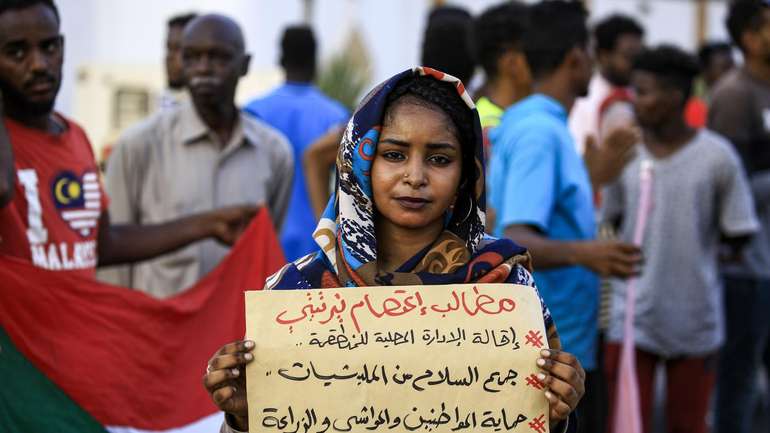 مطالب إعتصام نيرتيتي
# إقالة الإدارة المحلية للمنطقة ..
# جمع السلاح من المليشيات ..
# حماية المواطنين والمواشي والزراعة
I